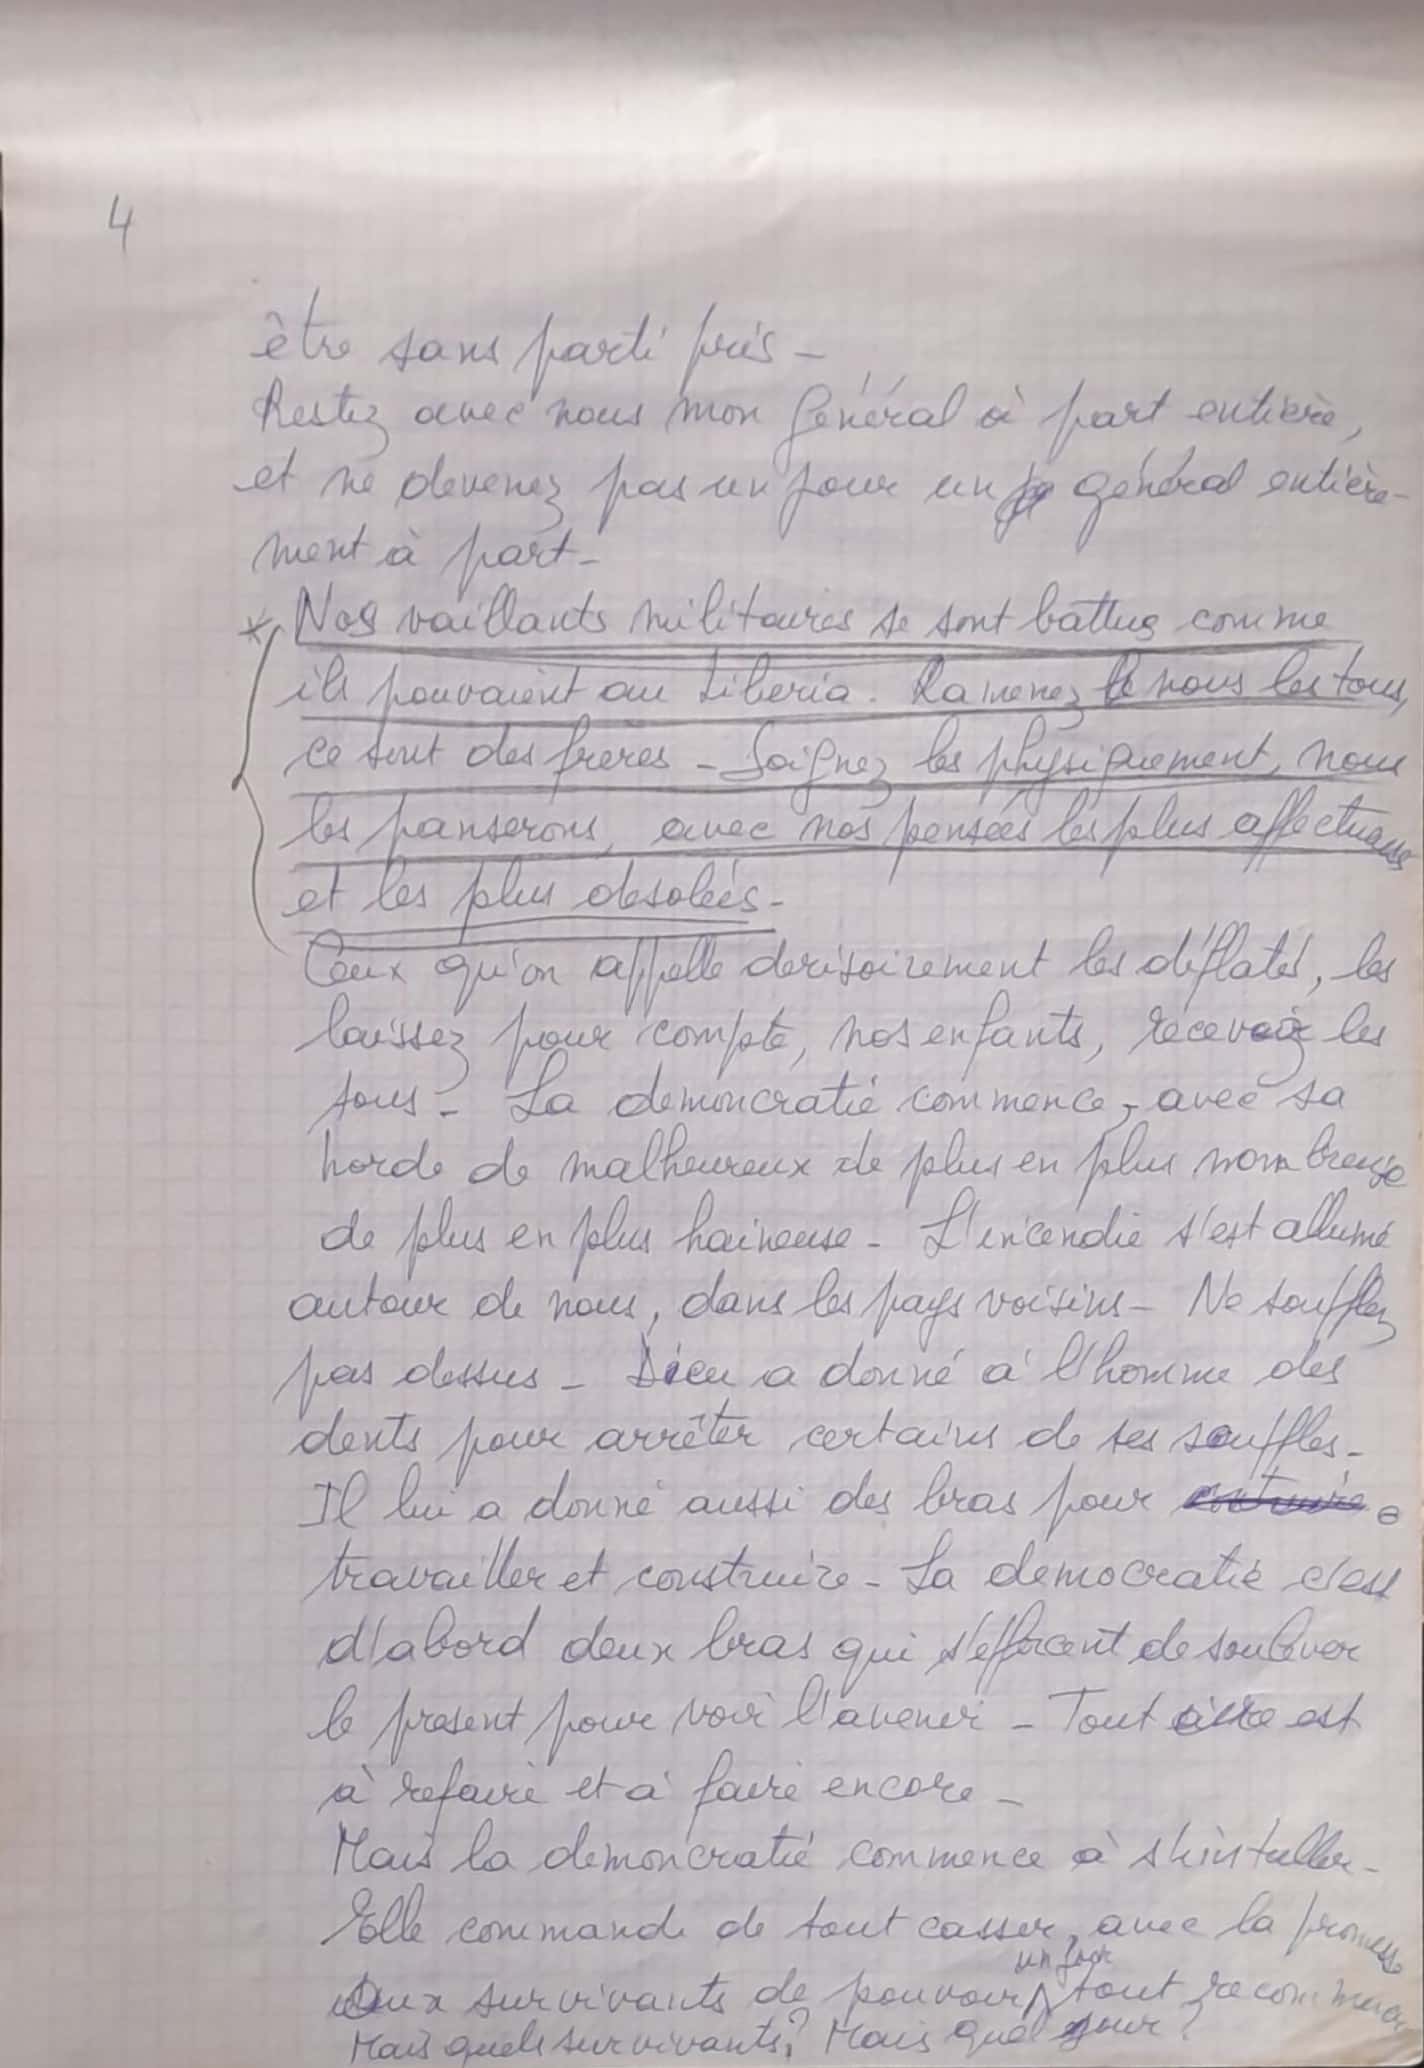 4
être sans parti pris -
Restez avec nous mon Général à part entière,
et ne devenez pas un jour un général entière-
ment à part -
* Nos vaillants militaires se sont battus comme
ils pouvaient au Liberia. Ramenez nous les tous,
ce sont des frères - Soignez les physiquement, nous
les panserons, avec nos pensées les plus affectueuses
et les plus desolées -
Ceux qu'on appelle derisoirement les déflatés, les
laissez pour compte, nos enfants, recevez les
tous - La demoncratie commence, avec sa
horde de malheureux de plus en plus nombreuse
de plus en plus haineuse - L'incendie s'est allumé
autour de nous, dans les pays voisins - Ne soufflez
pas dessus - Dieu a donné à l'homme des
dents pour arrêter certains de ses souffles -
Il lui a donné aussi des bras pour
travailler et construire - La democratie c'est
d'abord deux bras qui s'efforcent de soulever
le present pour voir l'avenir - Tout est
à refaire et à faire encore -
Mais la demoncratie commence à s'installer -
Elle commande de tout casser, avec la promesse
aux survivants de pouvoir un jour tout recommencer
Mais quels survivants ? Mais quel jour ?